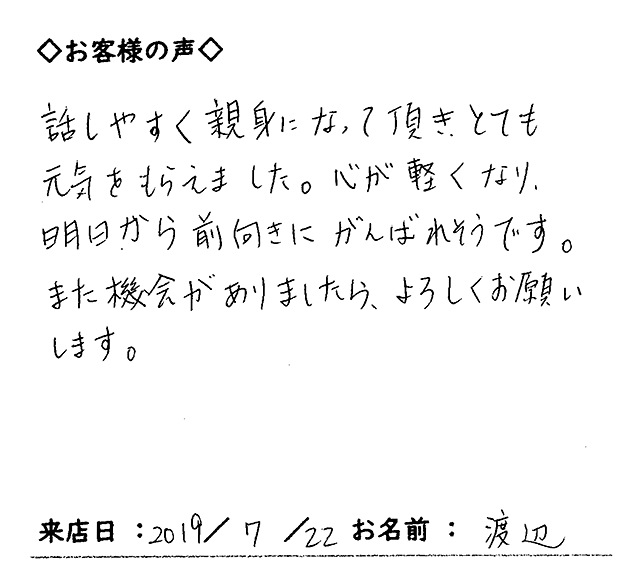 ◇お客様の声◇
話しやすく親身になって頂き、とても
元気をもらえました。心が軽くなり、
明日から前向きにがんばれそうです。
また機会がありましたら、よろしくお願い
します。
来店日：2019/7/22 お名前：渡辺